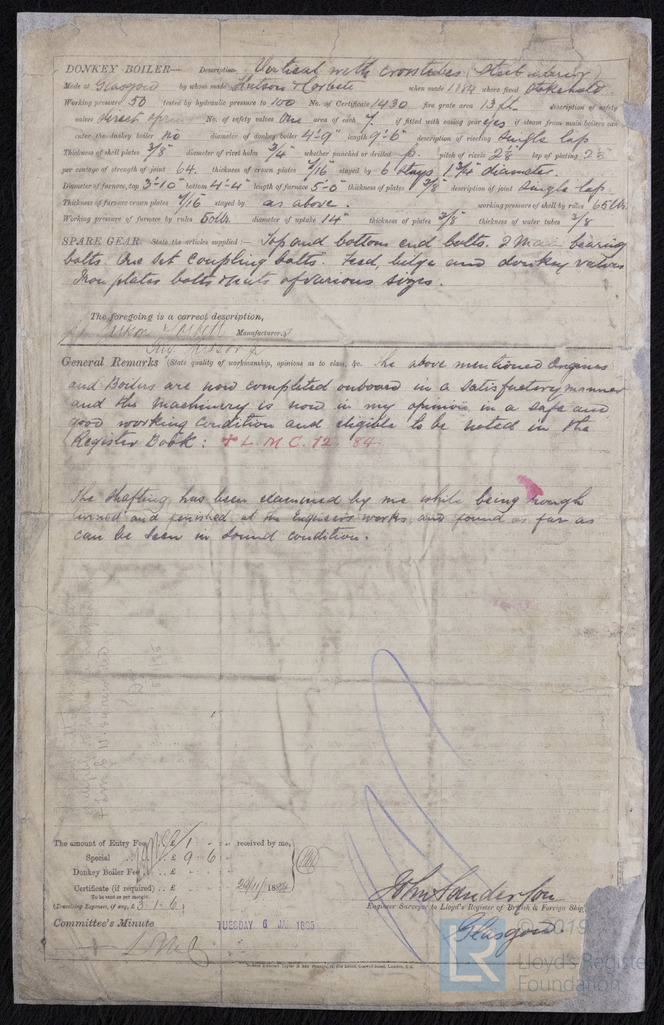 DONKEY BOILER— Description Vertical with crosstubes (Steel interior)
Made at Glasgow by whom made Hutson & Corbett when made 1884 where fixed Stokehold
Working pressure 50 tested by hydraulic pressure to 100 No. of Certificate 1430 fire grate area 13 ft description of safety
valves direct spring No. of safety valves One area of each 7 if fitted with easing gear yes if steam from main boilers can
enter the donkey boiler No diameter of donkey boiler 4'-9" length 9'-6" description of riveting Single lap
Thickness of shell plates 3/8 diameter of rivet holes 3/4 whether punched or drilled p. pitch of rivets lap of plating
per centage of strength of joint 64. thickness of crown plates 7/16 stayed by 6 stays 1 3/4 diameter.
Diameter of furnace, top 3'-10 bottom 4'-4" length of furnace 5'-0 thickness of plates 3/8 description of joint Single lap.
Thickness of furnace crown plates 7/16 stayed by as above. working pressure of shell by rules 65 lbs
Working pressure of furnace by rules 50 lbs. diameter of uptake 14" thickness of plates 3/8 thickness of water tubes 3/8
SPARE GEAR. State the articles supplied:— Top and bottom end bolts. 2 Main bearing
bolts. One set coupling bolts. Feed, bilge and donkey valves
Iron plates bolts & nuts of various sizes.
The foregoing is a correct description,
Manufacturer.
General Remarks (State quality of workmanship, opinions as to class, &c. The above mentioned Engines
and Boilers are now completed onboard in a satisfactory manner
and the Machinery is now in my opinion in a safe and
good working condition and eligible to be noted in the
Register Book: + L. M. C. 12. 84.
The shafting has been examined by me while being rough
turned and finished at the Engineers works and found as far as
can be seen in sound condition.
The amount of Entry Fee £ 2/1 received by me,
Special .. £ 9 . 6
Donkey Boiler Fee .. £
Certificate (if required) .. £ 29/11/ 1884
To be sent as per margin.
(Travelling Expenses, if any, £ 3-1-6)
John Sanderson
Engineer Surveyor to Lloyd's Register of British & Foreign Shipping
Glasgow
Committee's Minute TUESDAY 6 JAN 1885
© 2019
LR Lloyd's Register
Foundation